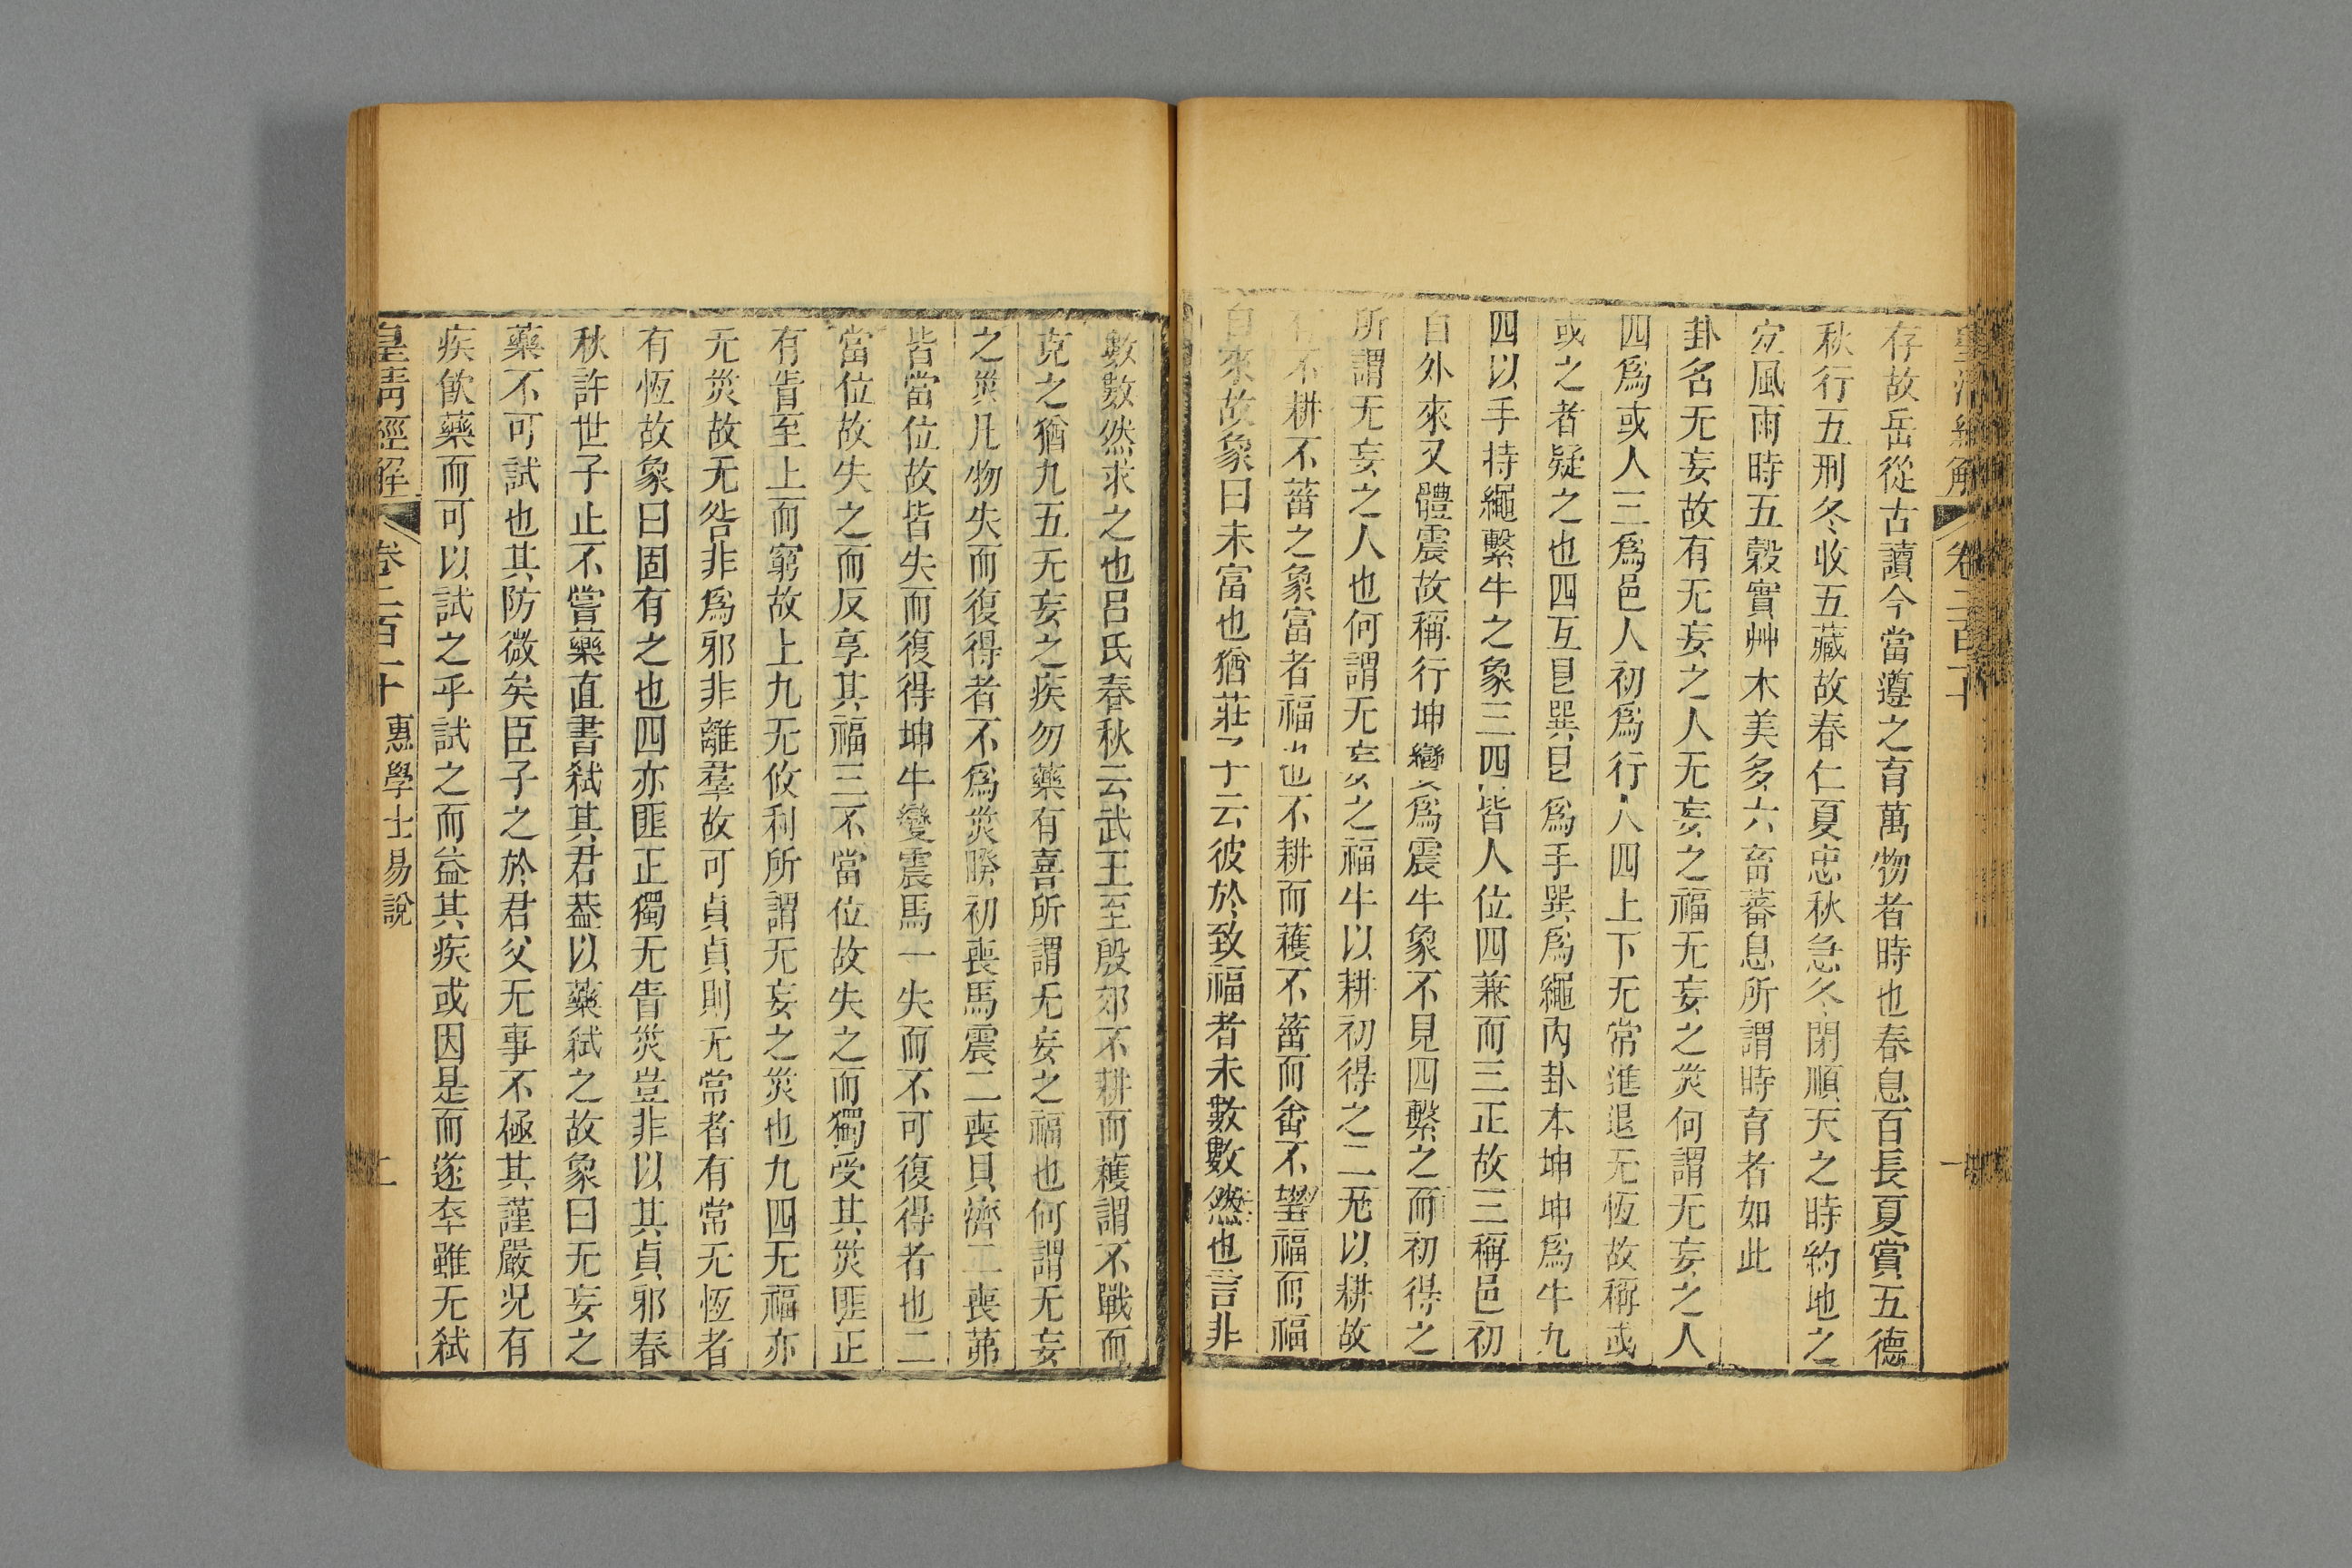 存故岳從古讀今當遵之育萬物者時也春息百長夏賞五德
秋行五刑冬收五藏故春仁夏忠秋急冬閉順天之時約地之
宐風雨時五榖實艸木美多六畜蕃息所謂時育者如此
卦名无妄故有无妄之人无妄之福无妄之災何謂无妄之人
四爲或人三爲邑人初爲行人四上下无常進退无恆故稱或
或之者疑之也四互艮巽艮爲手巽爲繩內卦本坤坤爲牛九
四以手持繩繫牛之象三四皆人位四兼而三正故三稱邑初
自外來又體震故稱行坤變爲震牛象不見四繫之而初得之
所謂无妄之人也何謂无妄之福牛以耕初得之二无以耕故
有不耕不菑之象富者福也不耕而穫不菑而畬不望福而福
自來故象曰未富也猶莊子云彼於致福者未數數然也言非
數數然求之也呂氏春秋云武王至殷郊不耕而穫謂不戰而
克之猶九五无妄之疾勿藥有喜所謂无妄之福也何謂无妄
之災凡物失而復得者不爲災睽初喪馬震二喪貝濟二喪茀
皆當位故皆失而復得坤牛變震馬一失而不可復得者也二
當位故失之而反享其福三不當位故失之而獨受其災匪正
有眚至上而窮故上九无攸利所謂无妄之災也九四无福亦
无災故无咎非爲邪非離羣故可貞貞則无常者有常无恆者
有恆故象曰固有之也四亦匪正獨无眚災豈非以其貞邪春
秋許世子止不嘗藥直書弒其君葢以藥弒之故象曰无妄之
藥不可試也其防微矣臣子之於君父无事不極其謹嚴況有
疾飮藥而可以試之乎試之而益其疾或因是而遂卒雖无弒
皇淸經解 卷二百一十 惠學士易說